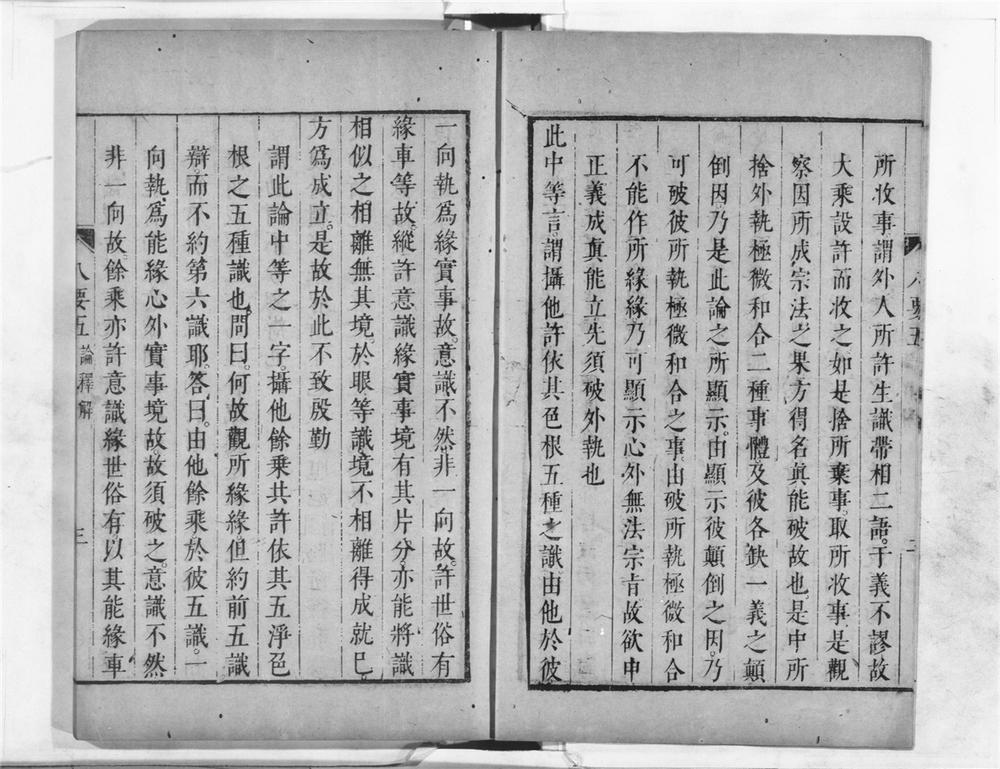 所收事謂外人所許生識帶相二語。于義不謬故
大乘設許而收之如是捨所棄事。取所收事是觀
察因所成宗法之果方得名真能破故也。是中所
捨外執極微和合二種事體及彼各缺一義之顛
倒因。乃是此論之所顯示。由顯示彼顛倒之因。乃
可破彼所執極微和合之事由破所執極微和合
不能作所緣緣乃可顯示心外無法宗旨故欲申
正義成真能立先須破外執也
此中等言。謂攝他許依其色根五種之識由他於彼
一向執爲緣實事故。意識不然非一向故。許世俗有
緣車等故。縱許意識緣實事境有其片分亦能將識
相似之相離無其境。於眼等識境不相離得成就已
方爲成立。是故於此不致殷勤
謂此論中等之一字。攝他餘乘共許依其五淨色
根之五種識也。問曰。何故觀所緣緣但約前五識
辯而不約第六識耶。答曰。由他餘乘於彼五識。一
向執爲能緣心外實事境故。故須破之。意識不然
非一向故。餘乘亦許意識緣世俗有以其能緣車
八要五 論釋解 三